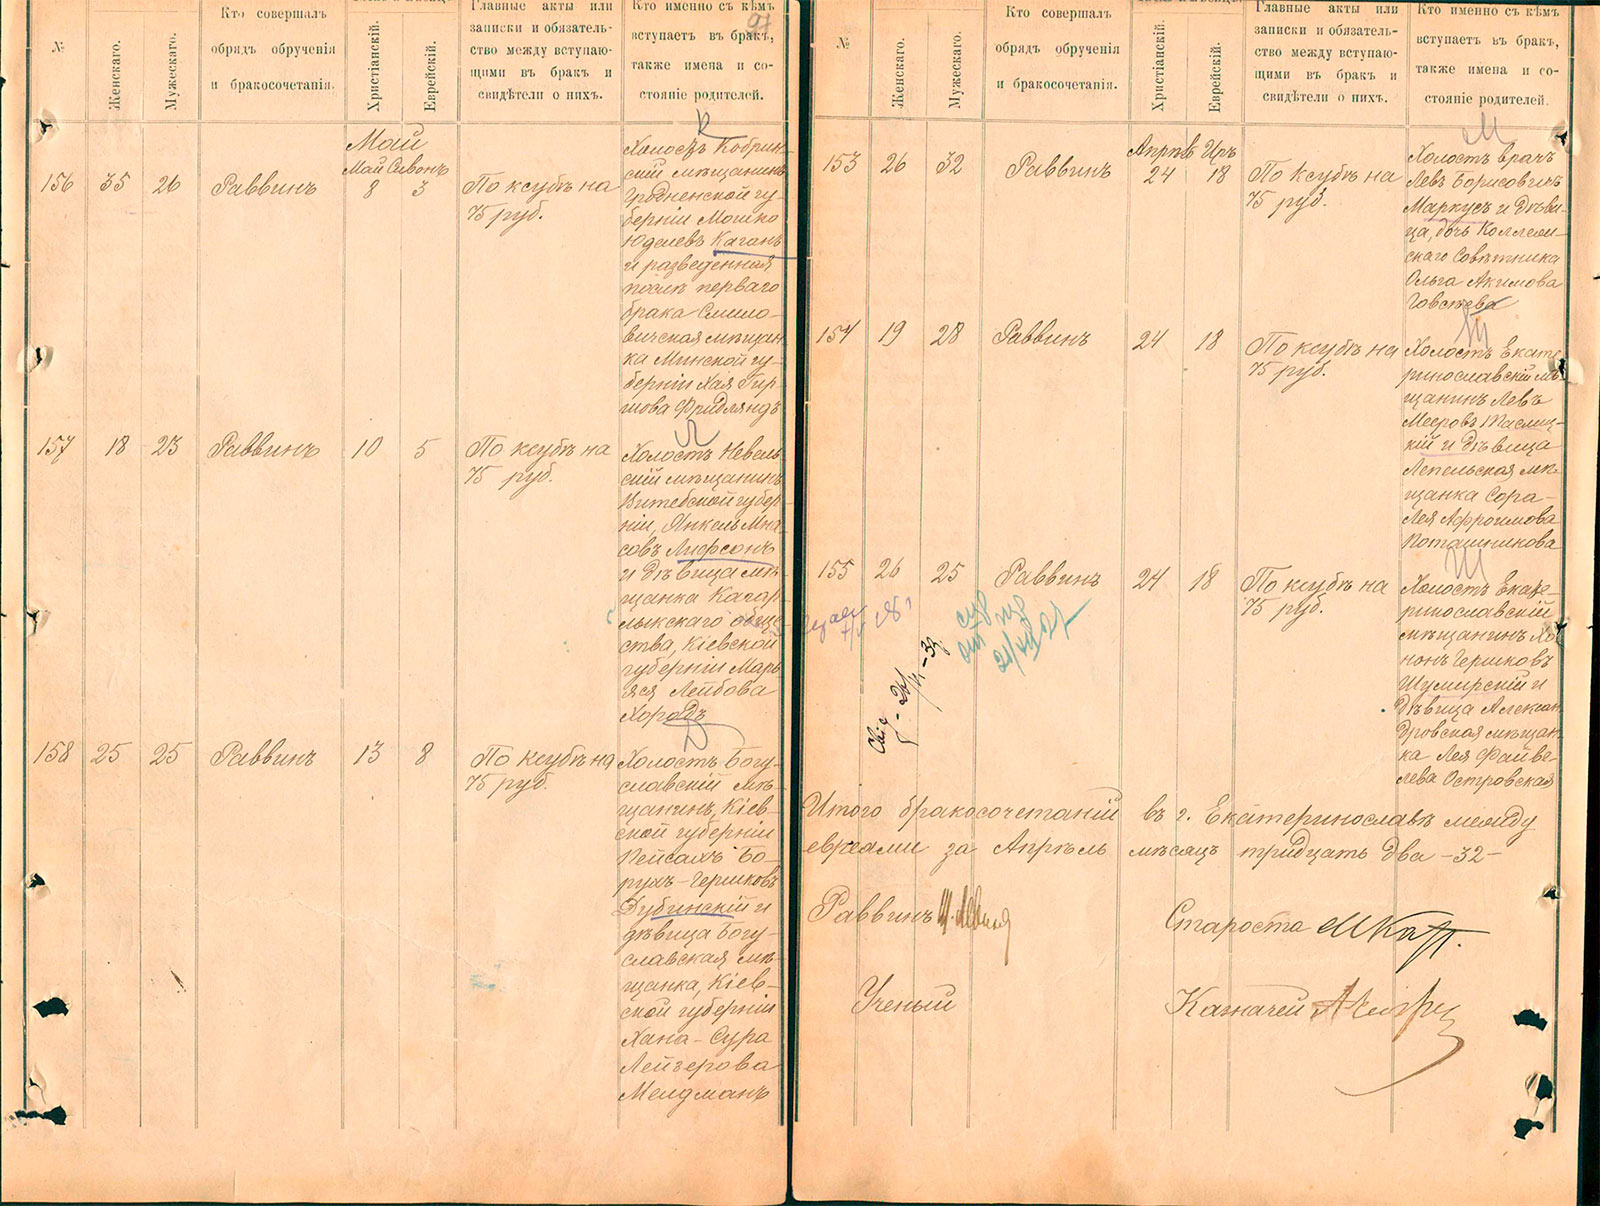 №
Женскаго.
Мужескаго.
Кто совершалъ
обрядъ обрученія
и бракосочетанія.
Христіанскій.
Еврейскій.
Главные акты или
записки и обязатель-
ство между вступаю-
щими въ бракъ и
свидѣтели о нихъ.
Кто именно съ кѣмъ
вступаетъ въ бракъ,
также имена и со-
стояніе родителей.
97
Май
Май Сивонъ
156 35 26 Раввинъ 8 3
По ксубѣ на
75 руб.
К
Холостъ Кобрин-
скій мѣщанинъ
Гродненской гу-
берніи Мошко
Юделевъ Каганъ
и разведенная
послѣ перваго
брака Смило-
вичская мѣщан-
ка Минской гу-
берніи Хая Гир-
шова Фридляндъ
157 18 23 Раввинъ 10 5
По ксубѣ на
75 руб.
Л
Холостъ Невель-
скій мѣщанинъ
Витебской губер-
ніи, Янкель Мна-
совъ Лифсонъ
и дѣвица мѣ-
щанка Кагар-
лыкскаго обще-
ства, Кіевской
губерніи Марь-
яся Лейбова
Хородъ
158 25 25 Раввинъ 13 8
По ксубѣ на
75 руб.
Д
Холостъ Богу-
славскій мѣ-
щанинъ, Кіев-
ской губерніи
Пейсахъ Бо-
рухъ-Гершковъ
Дубинскій и
дѣвица Богу-
славская мѣ-
щанка, Кіев-
ской губерніи
Хана-Сура
Лейзерова
Мелдманъ
№
Женскаго.
Мужескаго.
Кто совершалъ
обрядъ обрученія
и бракосочетанія.
Христіанскій.
Еврейскій.
Главные акты или
записки и обязатель-
ство между вступаю-
щими въ бракъ и
свидѣтели о нихъ.
Кто именно съ кѣмъ
вступаетъ въ бракъ,
также имена и со-
стояніе родителей.
Апрѣль Иръ
153 26 32 Раввинъ 24 18
По ксубѣ на
75 руб.
М
Холостъ врачъ
Левъ Борисовичъ
Маркусъ и дѣви-
ца, дочь Коллеж-
скаго Совѣтника
Ольга Акимова
Говсеева
154 19 28 Раввинъ 24 18
По ксубѣ на
75 руб.
Холостъ Екате-
ринославскій мѣ-
щанинъ Левъ
Мееровъ Таслиц-
кій и дѣвица
Лепельская мѣ-
щанка Сора-
Лея Афроимова
Поташникова
155 26 25 Раввинъ 24 18
По ксубѣ на
75 руб.
Ш
Холостъ Екате-
ринославскій
мѣщанинъ Хо-
нонъ Гершковъ
Шумирскій и
дѣвица Алексан-
дровская мѣщан-
ка Лея Файве-
лева Островская
Итого бракосочетаній въ г. Екатеринославѣ между
евреями за Апрѣль мѣсяцъ тридцать два -32-
Раввинъ
Староста
Ученый
Казначей